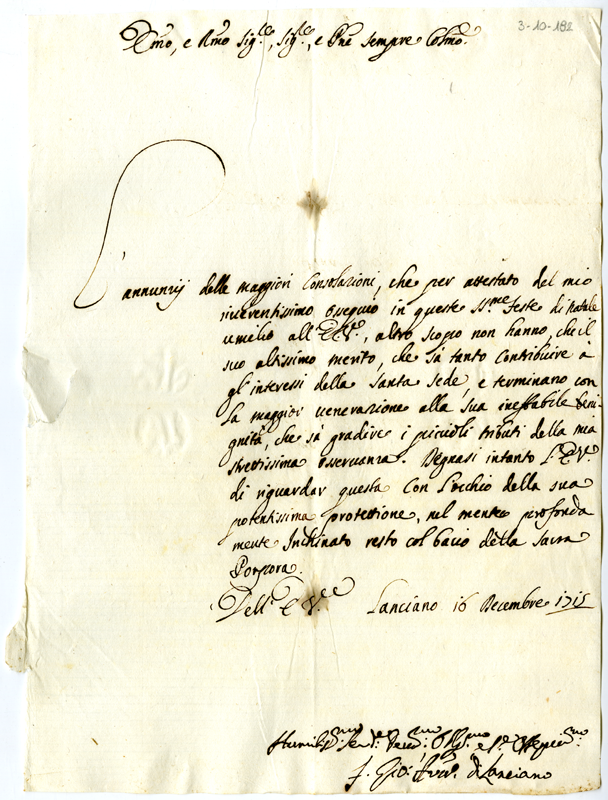 3-10-182
Emo, e Rmo Sig.re, Sig.re, e Pne sempre Colmo.
L'annunzij delle maggiori Consolazioni, che per attestato del mio
riverentissimo ossequio in queste SS.me feste di Natale
umilio all'E.V., altro scopo non hanno, che il
suo altissimo merito, che sà tanto Contribuire à
gl'interessi della Santa Sede, e terminano con
la maggior venerazione alla sua ineffabile beni-
gnità, che sà gradire i piccioli tributi della mia
strettissima osservanza. Degnasi intanto L'E.V.
di riguardar questa Con l'occhio della sua
potentissima protettione, nel mentre profonda
mente Inchinato resto col bacio della Sacra
Porpora.
Dell'E.V. Lanciano 16 Decembre 1715
Humiliss.mo
f. Gio: di Lanciano